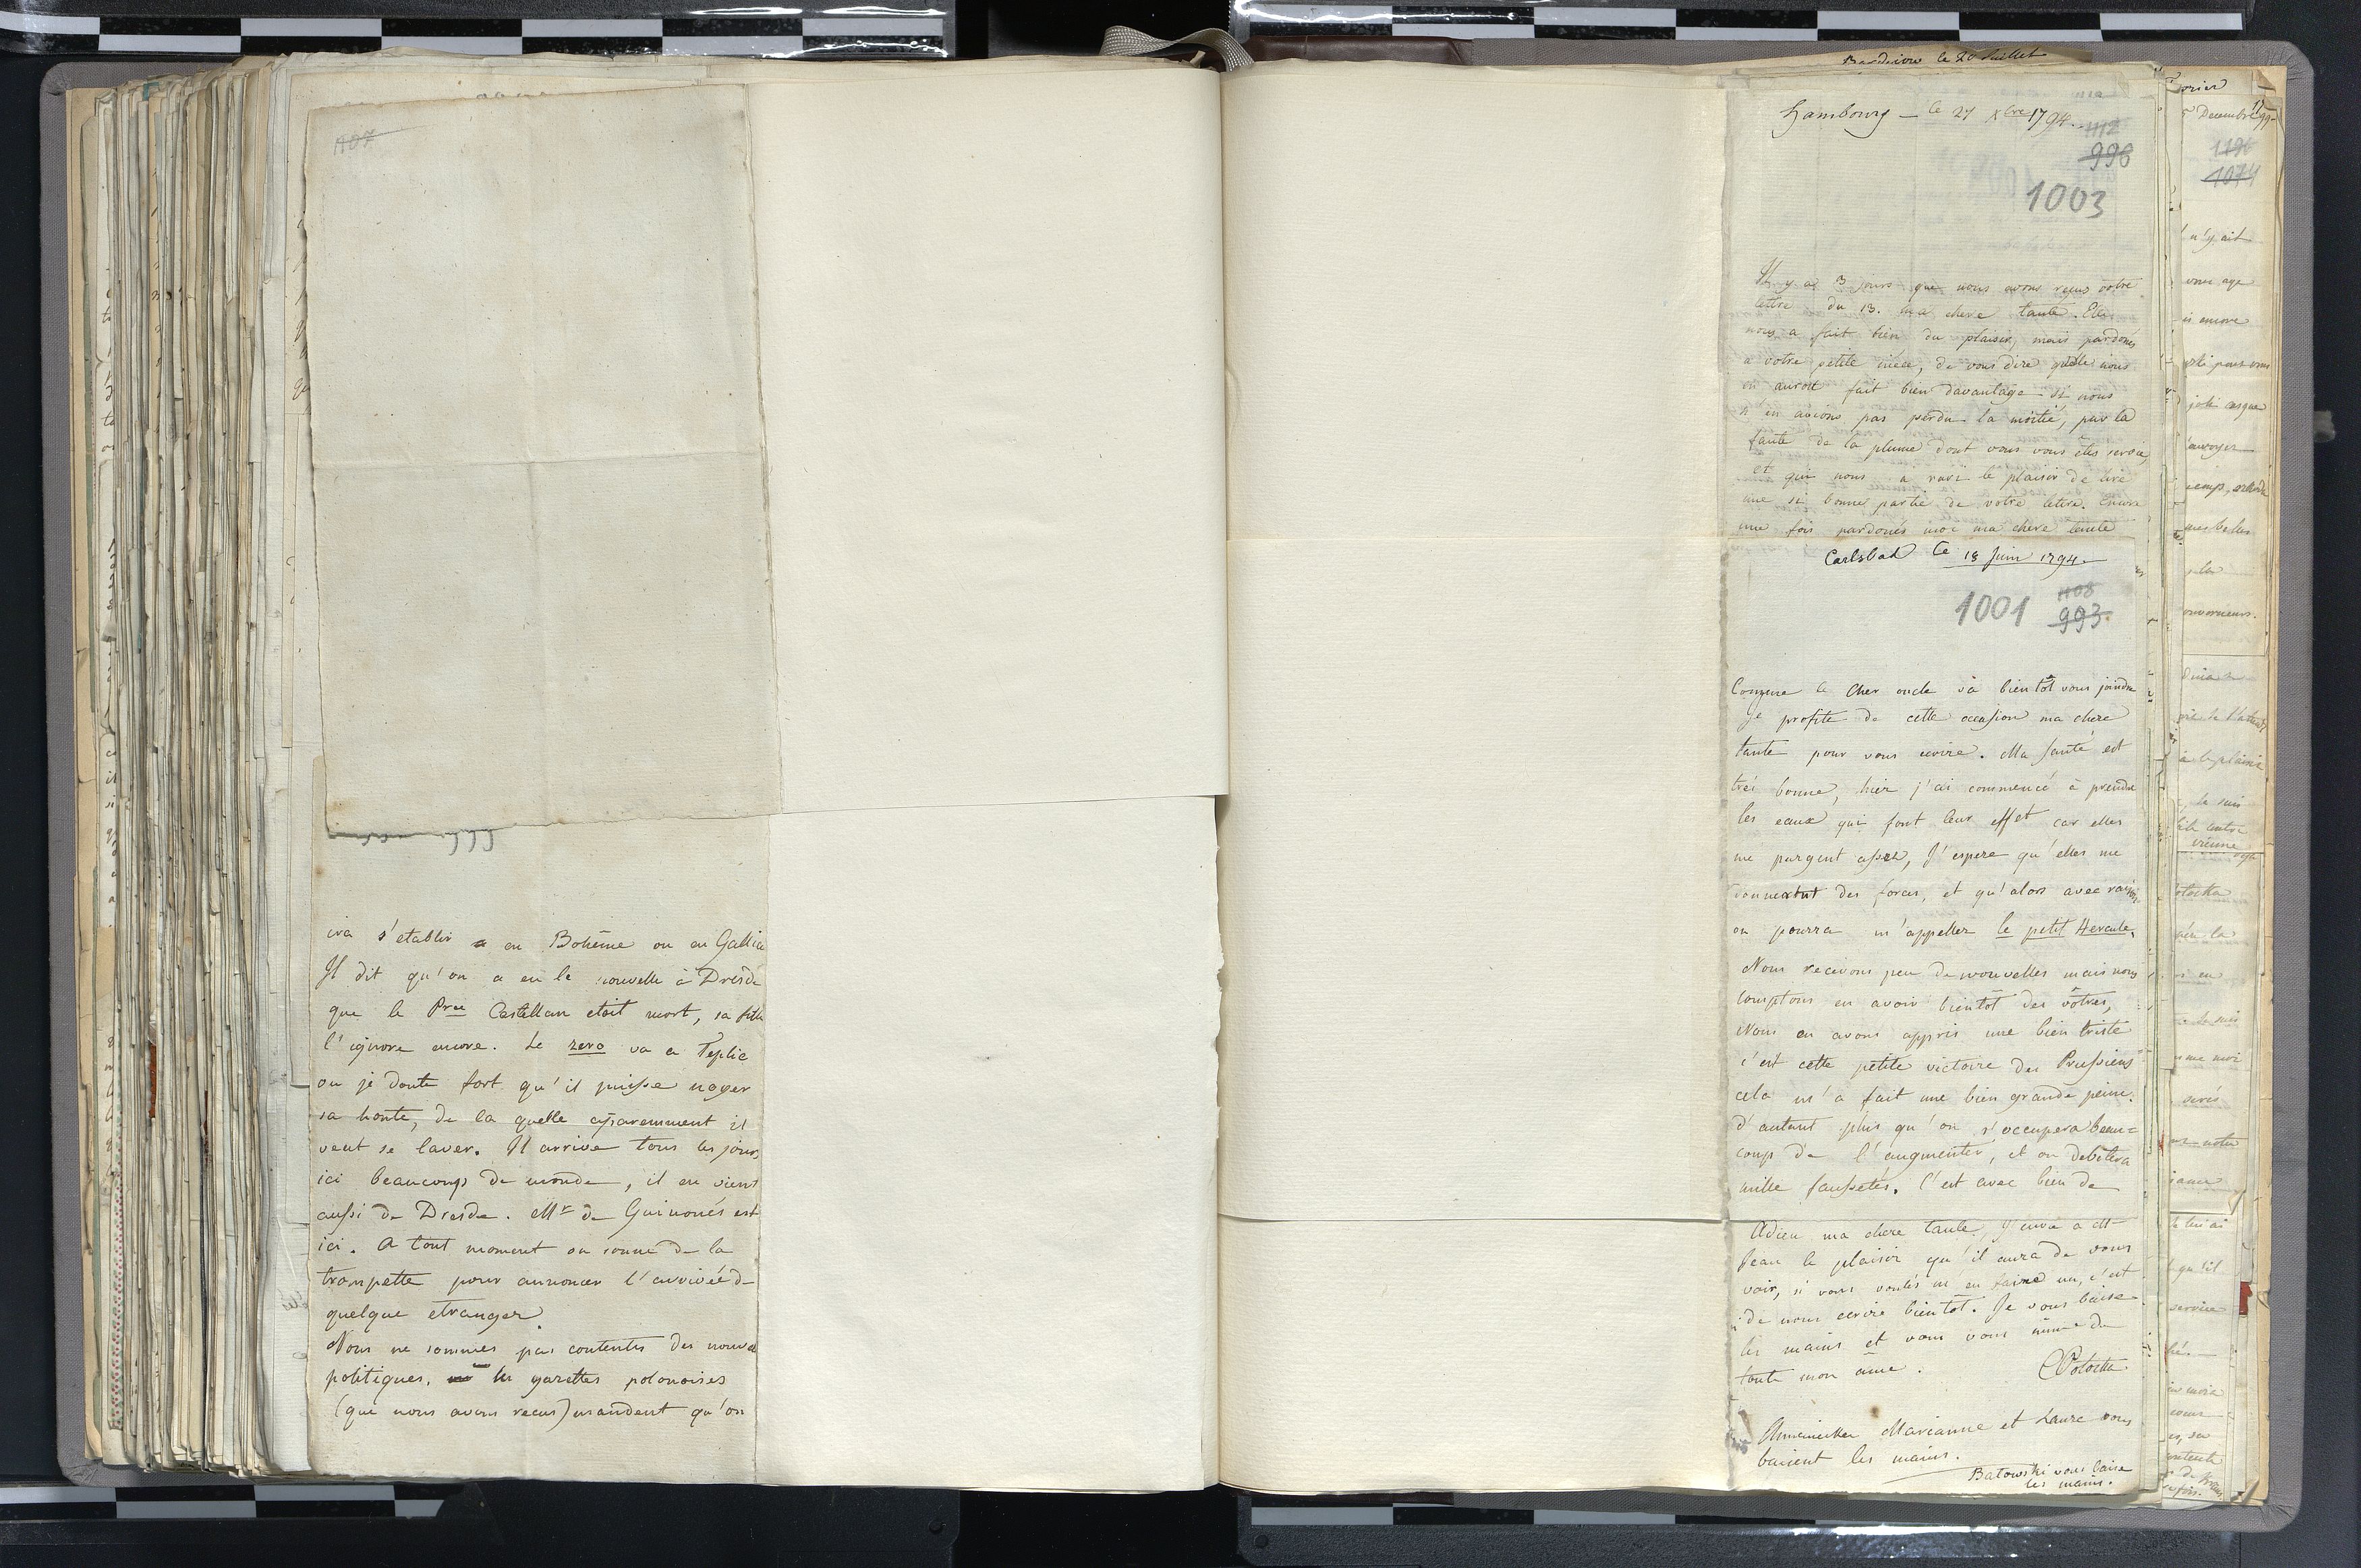 1107
ira s'etablir en Bohême ou en Gallicie
Il dit qu'on a eu la nouvelle à Dresde
que le Pree Castellan etoit mort, sa fille
l'ignore encore. Le zero va a Teplic
ou je doute fort qu'il puisse noyer
sa honte, de la quelle aparemment il
veut se laver. Il arrive tous les jours
ici beaucoup de monde, il en vient
aussi de Dresde. Mr de Guinonés est
ici. A tout moment on sonne de la
trompette pour annoncer l'arrivée d-
quelque etranger.
Nous ne sommes pas contentes des nouvel
politiques. les gazettes polonoises
(que nous avons recus) mandent qu'on
Bardiow le 20 Juillet
Hambourg – le 27 Xbre 1794.
1112
996
1003
Il y a 3 jours que nous avons reçus votre
lettre du 13. ma chere tante. Elle
nous a fait bien du plaisir, mais pardonés
a votre petite niece, de vous dire qu'elle nous
en auroit fait bien davantage si nous
n'en avions pas perdu la moitié, par la
faute de la plume dont vous vous êtes servie,
et qui nous a ravi le plaisir de lire
une si bonne partie de votre lettre. Encore
une fois pardonés moi ma chere tante
Carlsbad le 18 Juin 1794.
1001 1108
993.
Comme le cher oncle va bientôt vous joindre
je profite de cette occasion ma chere
tante pour vous ecrire. Ma santé est
très bonne, hier j'ai commencé à prendre
les eaux qui font leur effet car elles
me purgent assez, J'espere qu'elles me
donneront des forces, et qu'alors avec raison
on pourra m'appeller le petit Hercule.
Nous recevons peu de nouvelles mais nous
comptons en avoir bientôt des vôtres,
Nous en avons appris une bien triste
c'est cette petite victoire des Prussiens
cela m'a fait une bien grande peine.
d'autant plus qu'on s'occupera beau=
coup de l'augmenter, et on debitera
mille faussetés. C'est avec bien de
Adieu ma chere tante, J'envie a M-
Jean le plaisir qu'il aura de vous
voir, si vous voulés m'en faire un, c'est
de nous ecrire bientôt. Je vous baise
les mains et vous aime de
toute mon ame. CPotocka
Marianne et Laure vous
baisent les mains.
Batowski vous baise
les mains.
5 Decembre 1799-
1196
1074
n'y ait
encore
joli casque
envoyer
mes belles
gouverneurs.
le plaisir
je suis
Potocka
je suis
comme moi
votre
je lui ai
qu'il
service